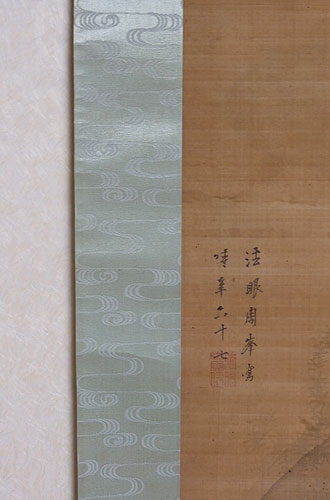 法眼周峯寫
時年六十七